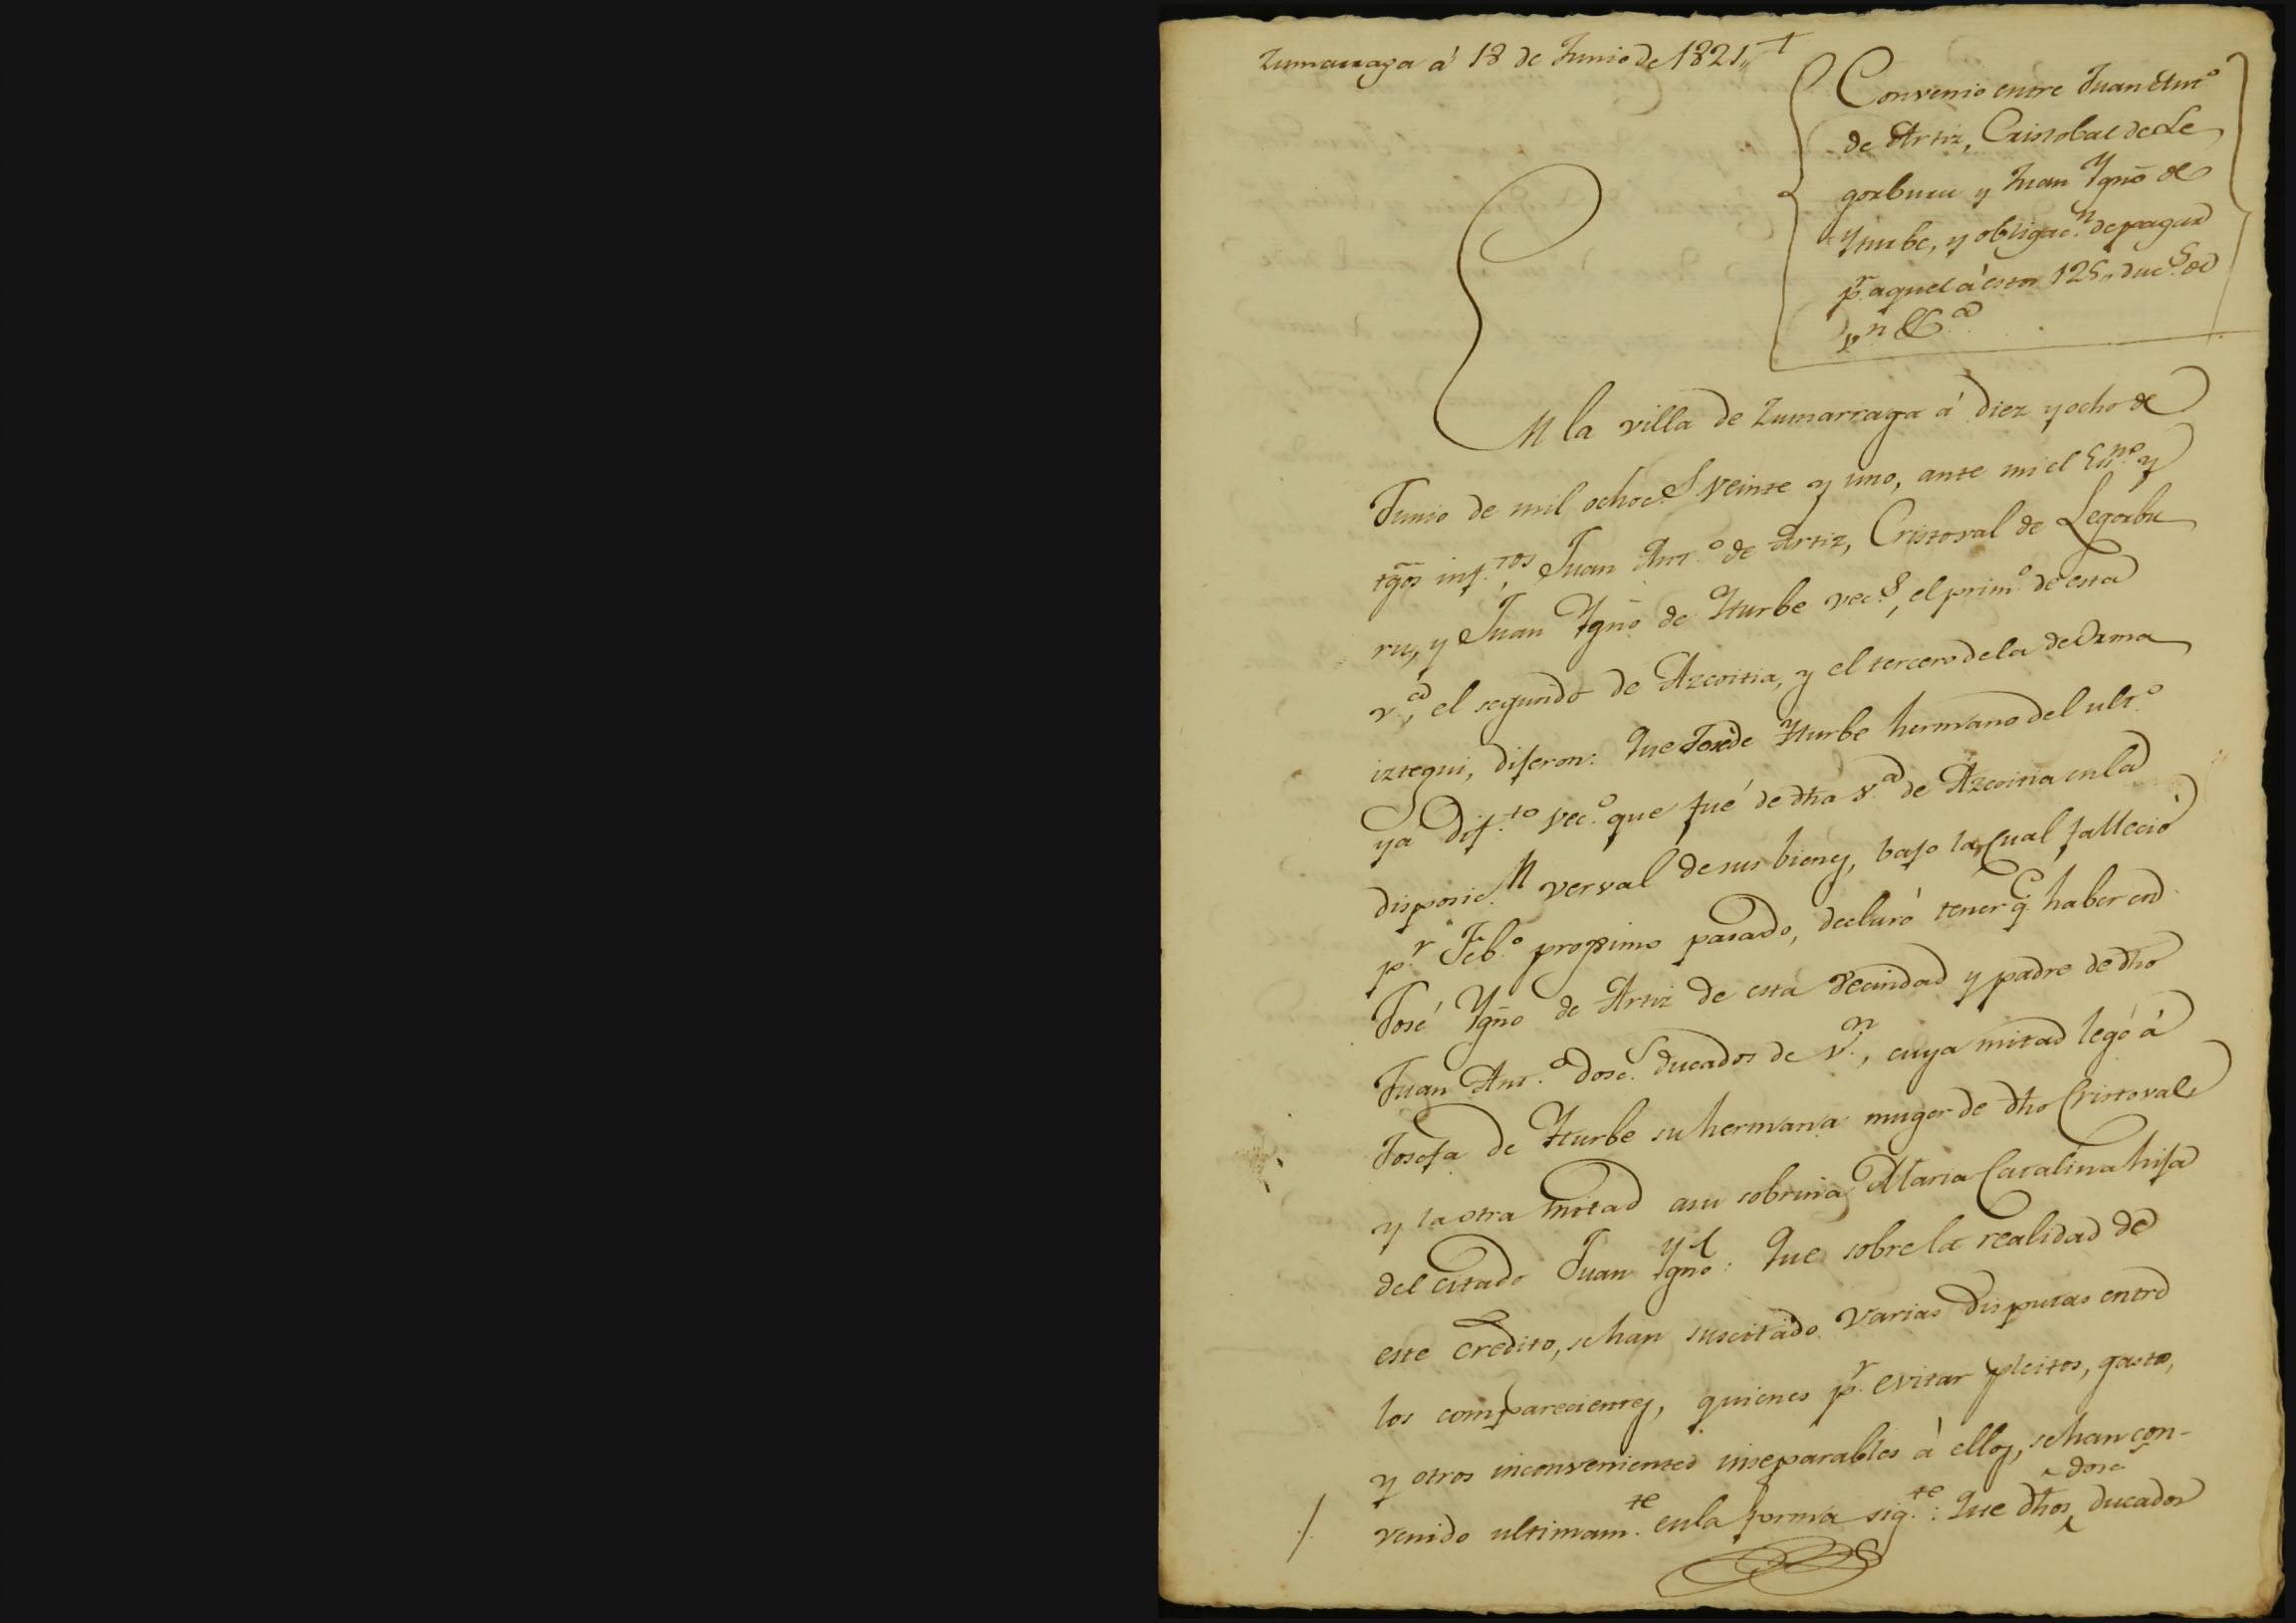 Zumarraga á 18 de Junio de 1821,, +
Convenio entre Juan Ant.º
de Artiz, Cristobal de Le
gorburu y Juan Ygnº de
Yturbe, y obligac.n de pagar
p.r aquel á estos 125,, duc.s de
v.n &.a
En la villa de Zumarraga á diez y ocho de
Junio de mil ochoc.s veinte y uno, ante mi el Esno y
tgõs inf.tos, Juan Ant.º de Artiz, Cristoval de Legorbu
ru, y Juan Ygnº de Yturbe vec.s, el prim.º de esta
v.a, el segundo de Azcoitia, y el tercero de la de Orma
iztegui, dijeron: Que José de Yturbe hermano del ult.º
ya dif.to vec.º que fué de dha v.a de Azcoitia en la
disposic.n verval de sus bienes, bajo la cual falleció
p.r Feb.º proximo pasado, declaró tener q.e haber en
José Ygnº de Artiz de esta vecindad y padre de dho
Juan Ant.º dosc.s ducados de v.n, cuya mitad legó á
Josefa de Yturbe su hermana muger de dho Cristoval
y la otra mitad a su sobrina Maria Catalina hija
del citado Juan Ygnº: Que sobre la realidad de
este credito, se han suscitado varias disputas entre
los comparecientes, quienes p.r evitar pleitos, gastos,
y otros inconvenientes inseparables á ellos, se han con-
venido ultimam.te en la forma sig.te: Que dhos dosc.s ducados